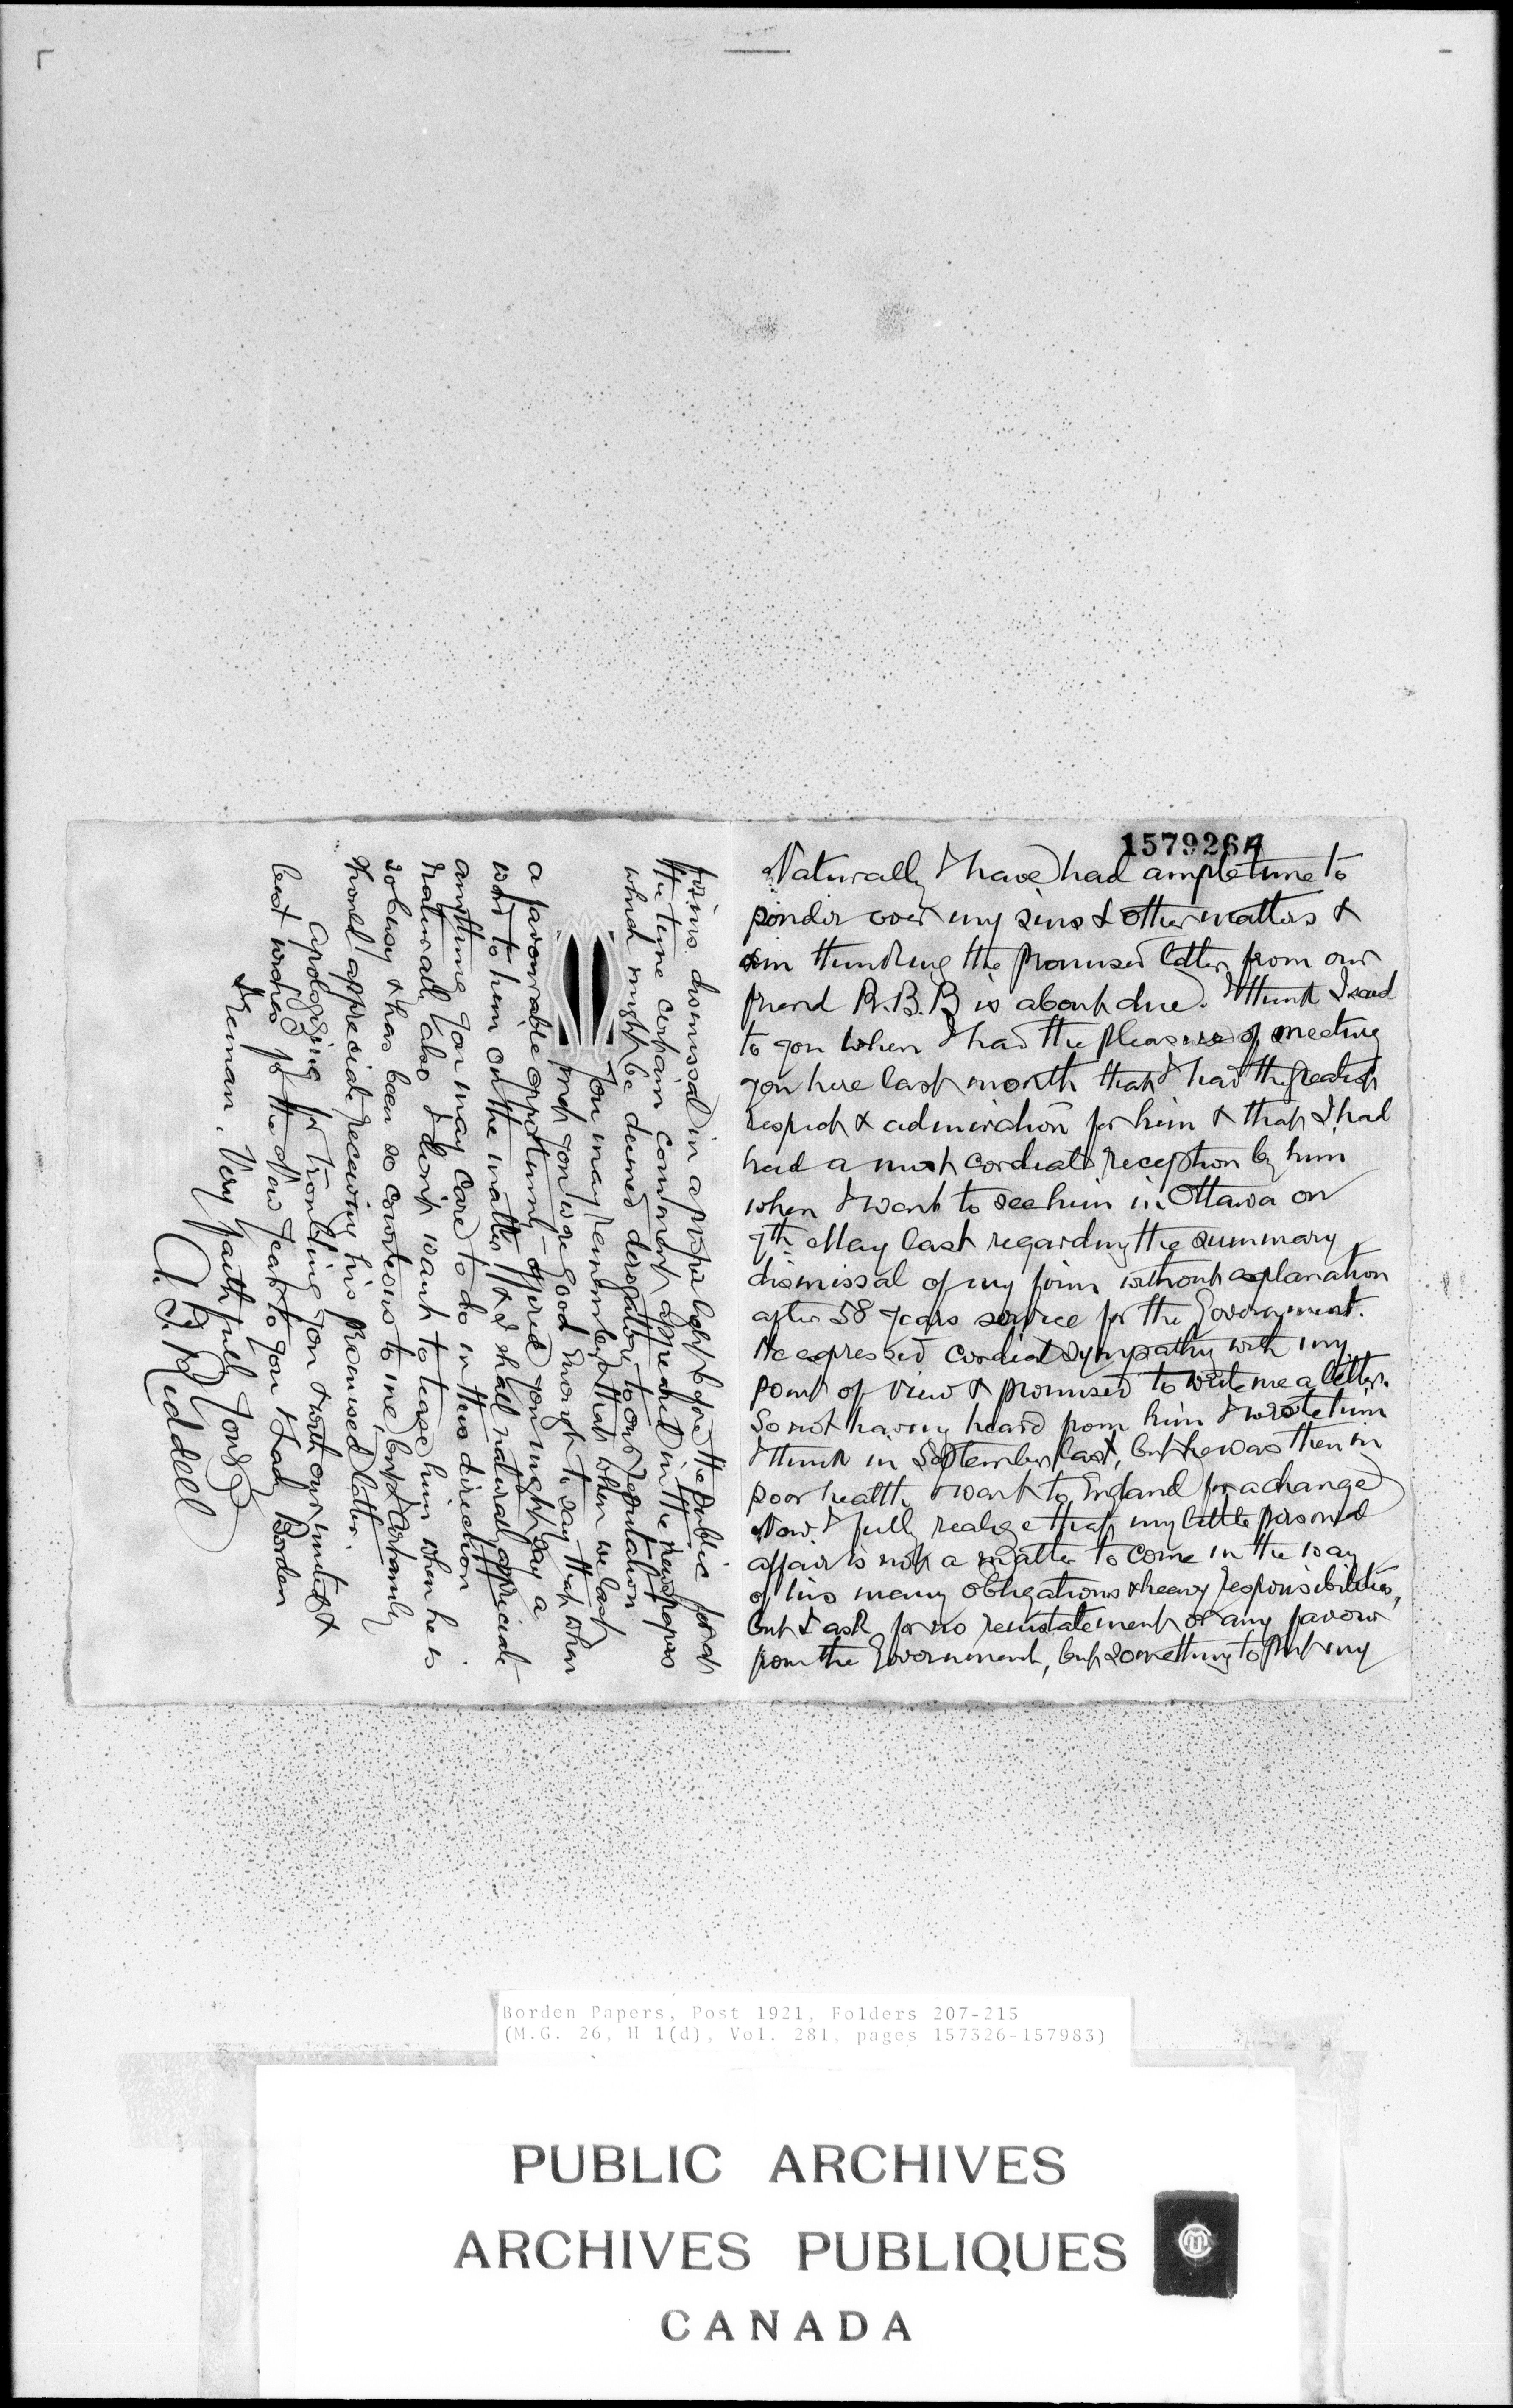 157926A
Naturally I have had ample time to
ponder over my sins & other matters &
am thinking the promised letter from our
friend R.B.B is about due. I think I said
to you when I had the pleasure of meeting
you here last month that I had the greatest
respect & admiration for him & that I had
had a most cordial reception by him
when I went to see him in Ottawa on
7th May last regarding the summary
dismissal of my firm without explanation
after 58 years service for the Government.
He expressed cordial sympathy with my
point of view & promised to write me a letter.
So not having heard from him I wrote him
I think in September last, but he was then in
poor health & went to England for a change
Now I fully realize that my little personal
affair is not a matter to come in the way
of his many obligations & heavy responsibilities,
but I ask for no reinstatement or any favour
from the Government, but something to put my
firms dismissal in a proper light before the public for at
the time certain comment appeared in the newspapers
which might be deemed derogatory to our reputation
You may remember that when we last
met you were good enough to say that when
a favourable opportunity offered you might say a
word to him on the matter & I shall naturally appreciate
anything you may care to do in this direction.
Naturally also I don't want to tease him when he is
so busy & has been so courteous to me, but I certainly
should appreciate receiving his promised letter.
Apologizing for troubling you & with our united
best wishes for the New Year to you & Lady Borden
I remain, Very faithfully Yours
A. F. Riddell
Borden Papers, Post 1921, Folders 207-215
(M.G. 26, H 1(d), Vol. 281, pages 157326-157983)
PUBLIC ARCHIVES
ARCHIVES PUBLIQUES
CANADA